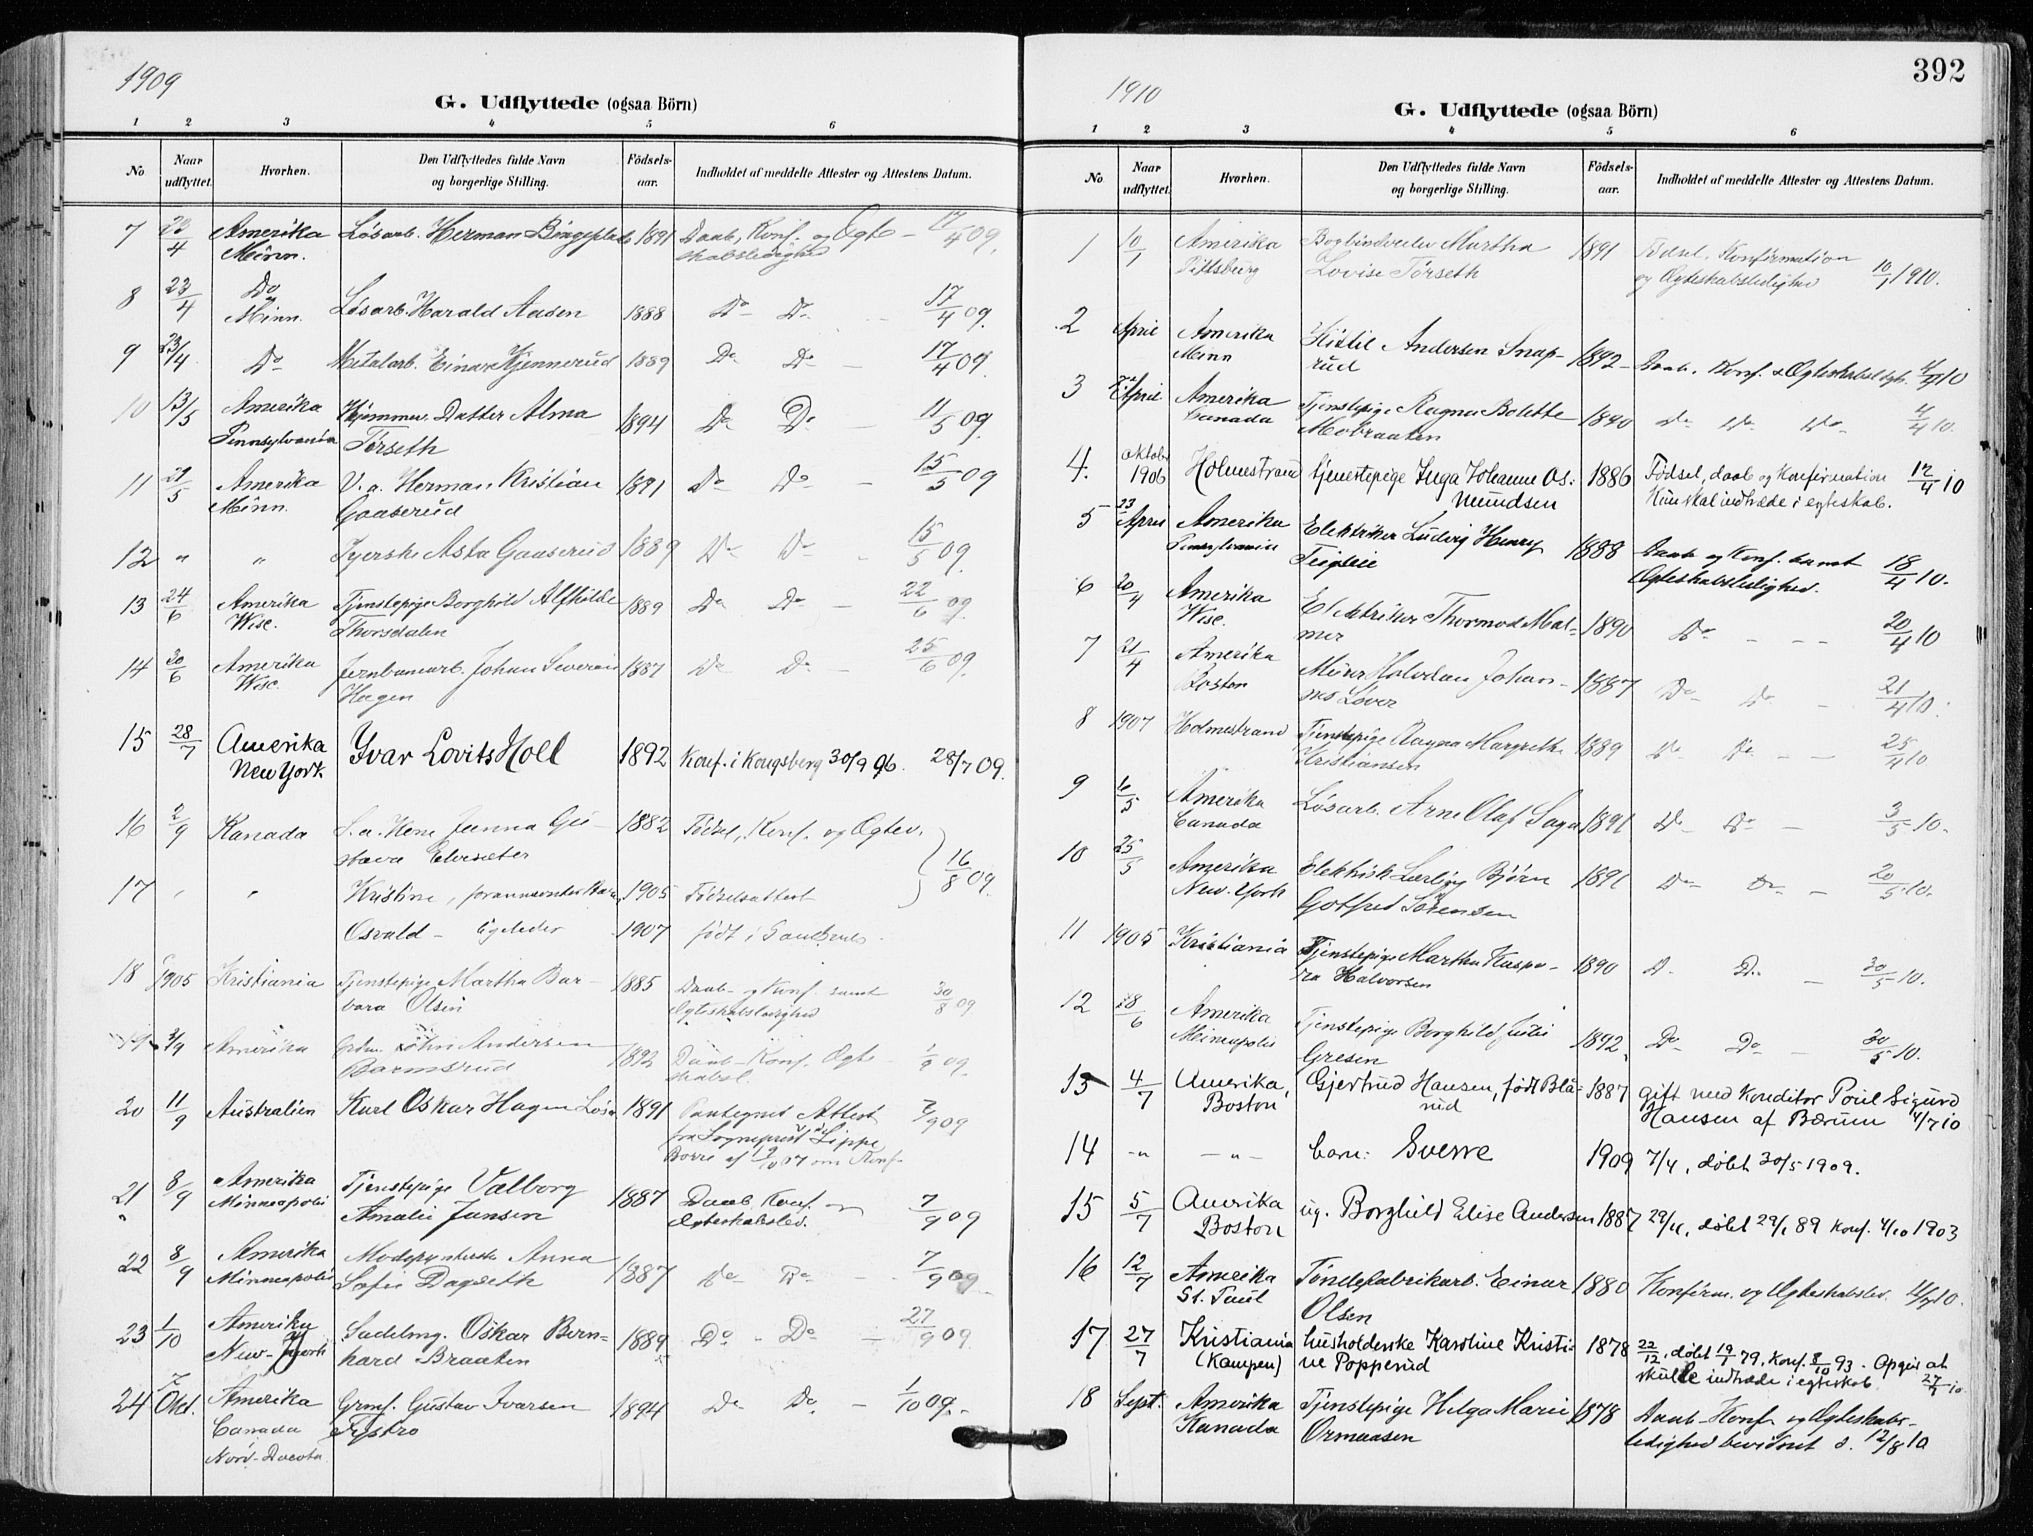 1909
G. Udflyttede (ogsaa Börn)
1 2 3 4 5 6
No Naar udflyttet. Hvorhen. Den Udflyttedes fulde Navn og borgerlige Stilling. Födsels-aar. Indholdet af meddelte Attester og Attestens Datum.
7 23/4 Amerika Løsarb. Herman 1891 Daab, Konf. og Ægte- 17/4 09.
Minn. skabsledighed
8 23/4 Do Minn. Løsarb. Harald Aasen 1888 Do Do 17/4 09.
9 23/4 Do Metalarb. Einar Kjennerud 1889 Do Do 17/4 09.
10 13/5 Amerika Hjemmev. Datter Alma 1894 Do Do 11/5 09.
Pennsylvania Torseth
11 21/5 Amerika U. a. Herman Kristian 1891 Do Do 15/5 09
Minn. Gaaserud
12 " " Syerske Asta Gaaserud 1889 Do Do 15/5 09.
13 24/6 Amerika Tjenstepige Borghild Alfhilde 1889 Do Do 22/6 09.
Wisc. Thorsdalen
14 30/6 Amerika Jernbanearb. Johan Severin 1887 Do Do 25/6 09.
Wisc. Hagen
15 28/7 Amerika Yvar Lovits Holl 1892 Konf. i Kongsberg 30/9 96. 28/7 09.
New York
16 2/9 Kanada Jenna Gu- 1882 Fødsel, Konf. og Ægtev.
stava 16/8 09.
17 " " Kristine, 1905 Fødselsattest
Osvald - Ligeledes 1907 født i
18 1905 Kristiania Tjenstepige Martha Bar- 1885 Daab- og Konf. samt 30/8 09
bara Olsen Ægteskabsledighed
19 2/9 Amerika John Andersen 1892 Daab- Konf. Ægte- 1/9 09.
skabsl.
20 11/9 Australien Karl Oskar Hagen Løsa. 1891 Attest 7/9 09
fra Sogneprest Lippe,
Borre af 07 om Konf.
21 8/9 Amerika Tjenstepige Valborg 1887 Daab Konf. og 7/9 09
Minneapolis Amalie Jansen Ægteskabsled.
22 8/9 Amerika Anna 1887 Do Do 7/9 09
Minneapolis Sofie Dagseth
23 1/10 Amerika Sadelmg. Oskar Bern- 1889 Do Do 27/9 09
New-York hard Braaten
24 7 Okt. Amerika Grmf. Gustav Ivarsen 1894 Do Do 1/10 09.
Canada
Nord-Dacota
392
1910
G. Udflyttede (ogsaa Börn)
1 2 3 4 5 6
No Naar udflyttet. Hvorhen. Den Udflyttedes fulde Navn og borgerlige Stilling. Födsels-aar. Indholdet af meddelte Attester og Attestens Datum.
1 10/1 Amerika Bogbinderelev Martha 1891 Fødsel, Konfirmation
Pittsburg Lovise Torseth og Ægteskabsledighed 10/1 1910.
2 April Amerika Kistil Andersen Snap- 1892 Daab. Konf. & 4/4 10
Minn rud
3 April Amerika Tjenstepige Ragna Bolette 1890 Do Do Do 4/4 10.
Canada Mobraaten
4. Oktober 1906 Holmestrand tjenestepige Inga Johanne Os- 1886 Fødsel, daab og Konfirmation 12/4 10
mundsen Hun skal indtræde i egteskab.
5 23 April Amerika Elektriker Ludvig Henry 1888 Daab og Konf. samt 18/4 10.
Pennsylvanien Teigeie Ægteskabsledighed.
6 20/4 Amerika Elektriker Thormod Mal- 1890 Do 20/4 10
Wisc. mer
7 21/4 Amerika Murer Halvdan Johan- 1887 Do Do 21/4 10.
Boston nes Løver
8 1907 Holmestrand Tjenstepige Ragna Margrethe 1889 Do Do 25/4 10
Kristiansen
9 6/5 Amerika Løsarb. Arne Olaf Saga 1891 Do Do 3/5 10.
Canada
10 25/5 Amerika Elektrisk Lærling Bjørn 1891 Do Do 20/5 10.
New-York Gotfred Sørensen
11 1905 Kristiania Tjenstepige Martha Kaspa- 1890 Do Do 30/5 10.
ra Halvorsen
12 28/6 Amerika Tjenstepige Borghild Julie 1892. Do Do 30/5 10.
Mineapolis Gresen
13 4/7 Amerika, Gjertrud Hansen, født Blä- 1887 gift med Konditor Poul Sigurd
Boston rud Hansen af Bærum 4/7 10
14 -"- -"- barn: Sverre 1909 7/4, døbt 30/5 1909.
15 5/7 Amerika ug. Borghild Elise Andersen 1887 29/11, døbt 29/1 89 Konf. 4/10 1903
Boston
16 12/7 Amerika Tøndefabrikarb. Einar 1880 Konfirm. og Ægteskabslev. 11/7 10.
St. Paul Olsen
17 27/7 Kristiania husholderske Karoline Kristi- 1878 22/12, døbt 19/1 79, Konf. 8/10 93. Opgir at
(Kampen) ne Popperud skulle indtræde i egteskab 27/7 10.
18 Sept. Amerika Tjenstepige Helga Marie 1878 Daab- Konf- og Ægteskabs-
Kanada Ormaasen ledighed bevidnet d. 12/8 10